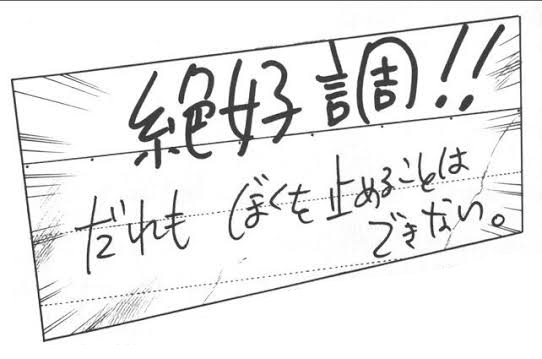 絶好調!!
だれも ぼくを止めることは
できない。